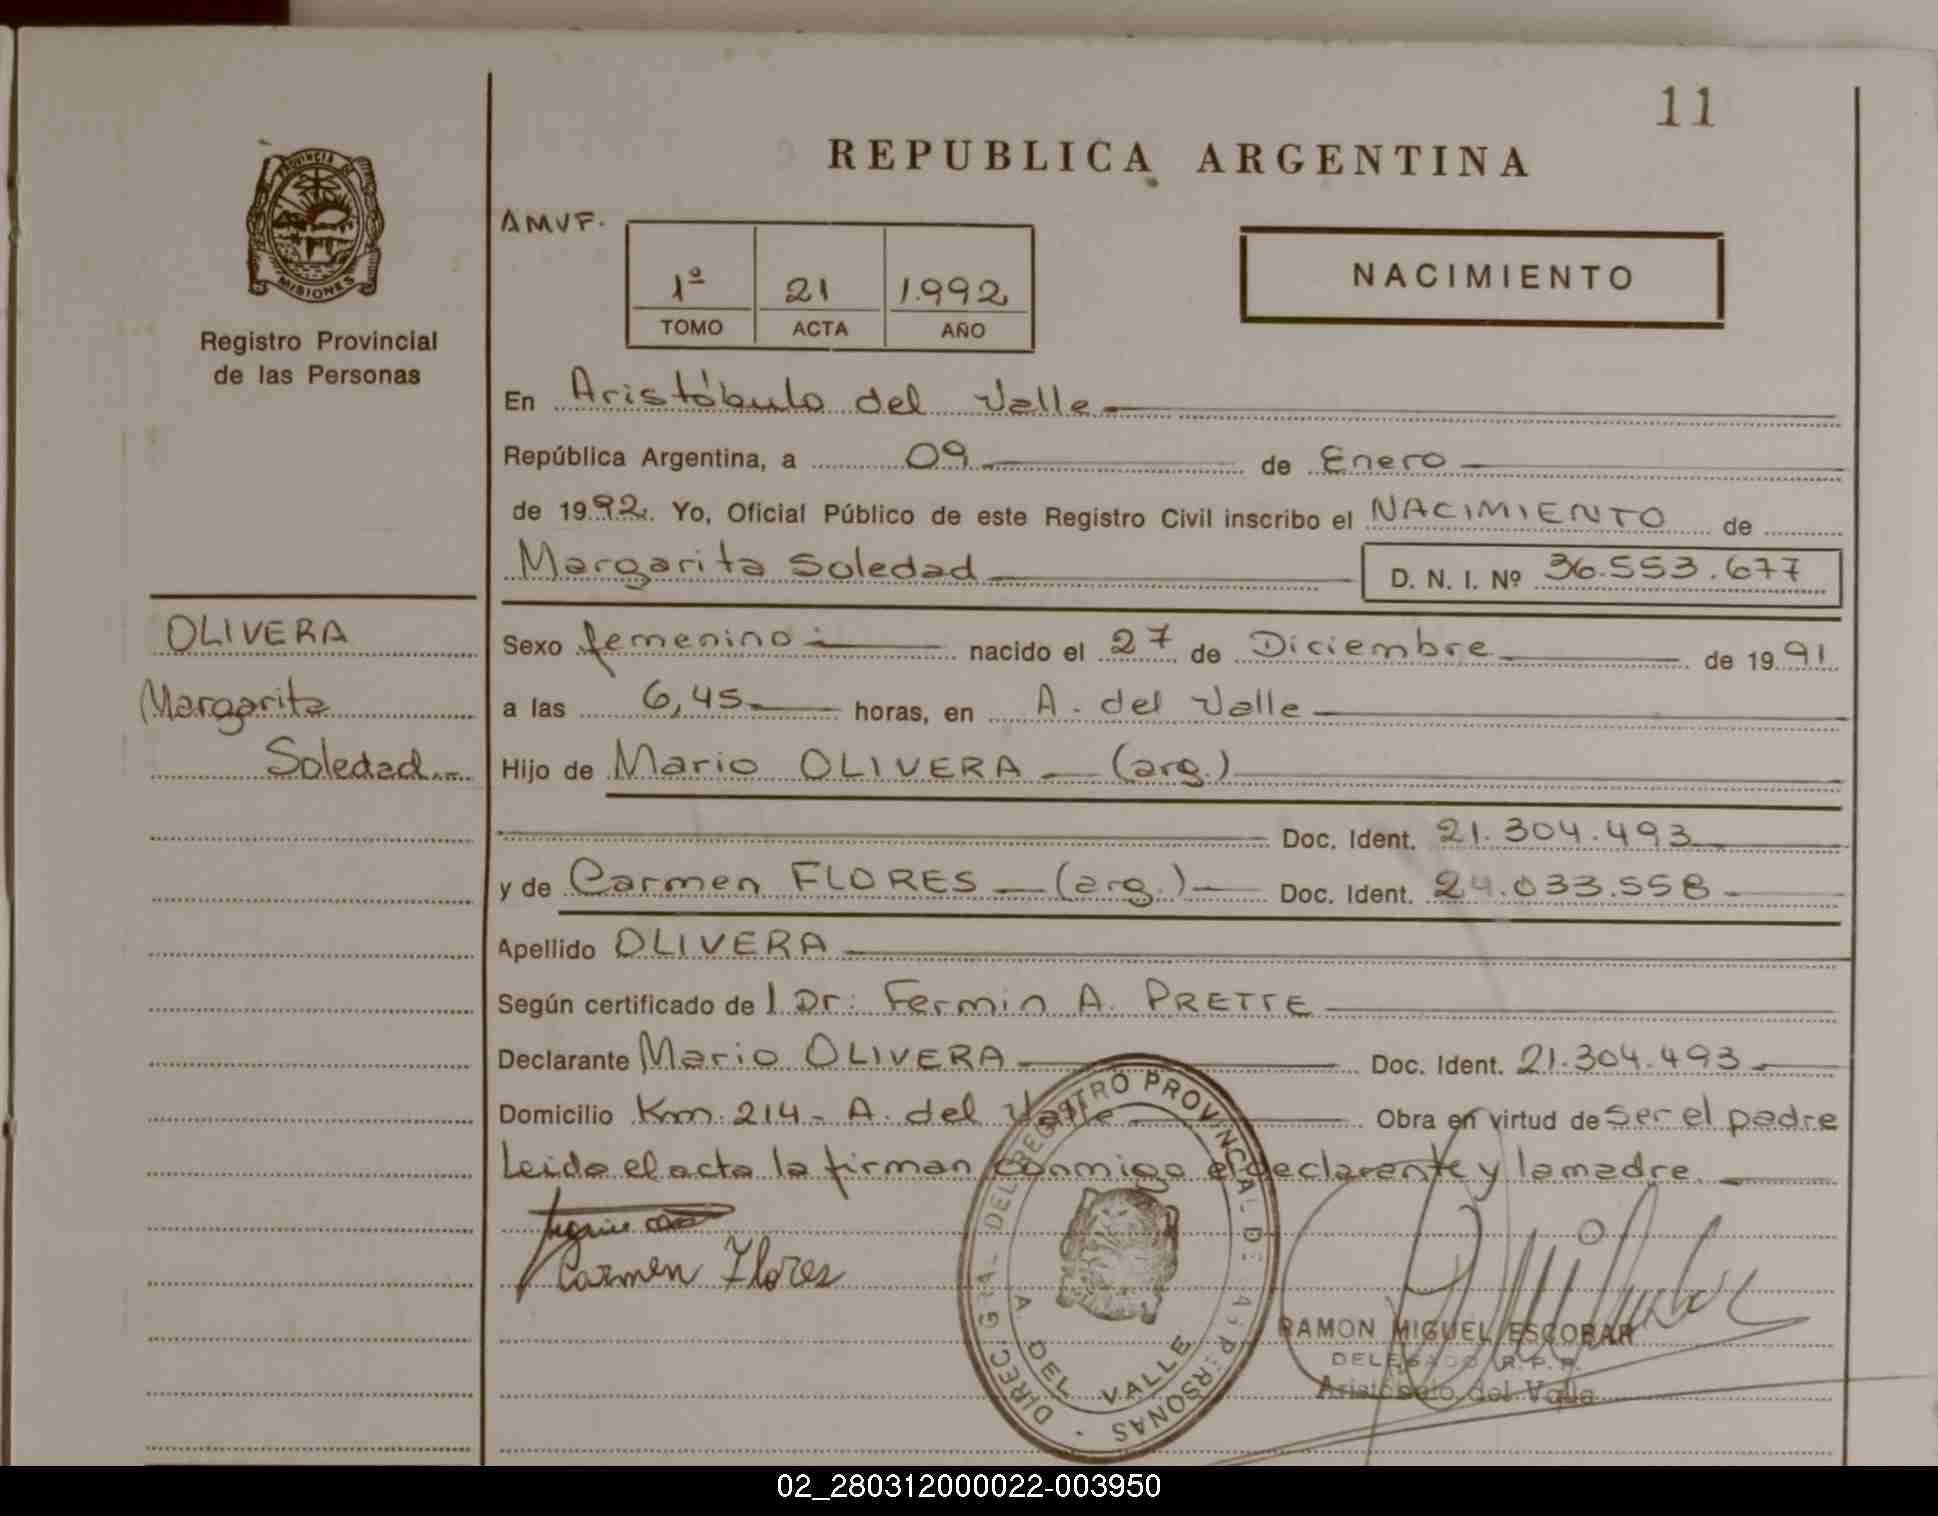 11
REPUBLICA ARGENTINA
PROVINCIA DE
MISIONES
Registro Provincial
de las Personas
AMVF.
1º 21 1.992
TOMO ACTA AÑO
NACIMIENTO
En Aristóbulo del Valle
República Argentina, a 09 de Enero
de 1992. Yo, Oficial Público de este Registro Civil inscribo el NACIMIENTO de
Margarita Soledad D. N. I. Nº 36.553.677
OLIVERA
Margarita
Soledad
Sexo femenino nacido el 27 de Diciembre de 1991
a las 6,45 horas, en A. del Valle
Hijo de Mario OLIVERA (arg.)
Doc. Ident. 21.304.493
y de Carmen FLORES (arg.) Doc. Ident. 24.033.558
Apellido OLIVERA
Según certificado de l Dr: Fermin A. PRETTE
Declarante Mario OLIVERA Doc. Ident. 21.304.493
Domicilio Km. 214 - A. del Valle Obra en virtud de ser el padre
Leida el acta la firman conmigo el declarante y la madre.
Carmen Flores
DIREC. GRAL. DEL REGISTRO PROVINCIAL DE LAS PERSONAS
A. DEL VALLE
RAMON MIGUEL ESCOBAR
DELEGADO R.P.P.
Aristóbulo del Valle
02_280312000022-003950